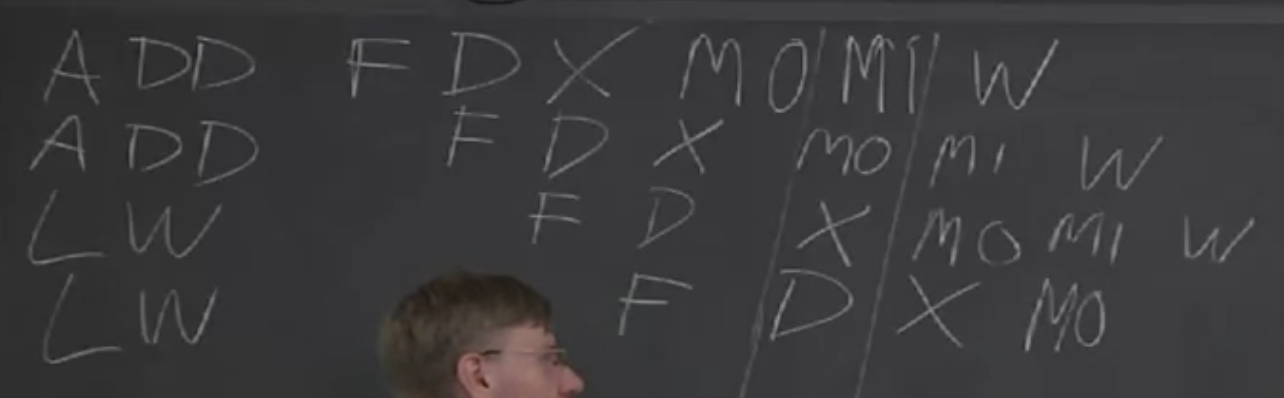 ADD F D X MO M1 W
ADD F D X MO M1 W
LW F D X MO M1 W
LW F D X MO